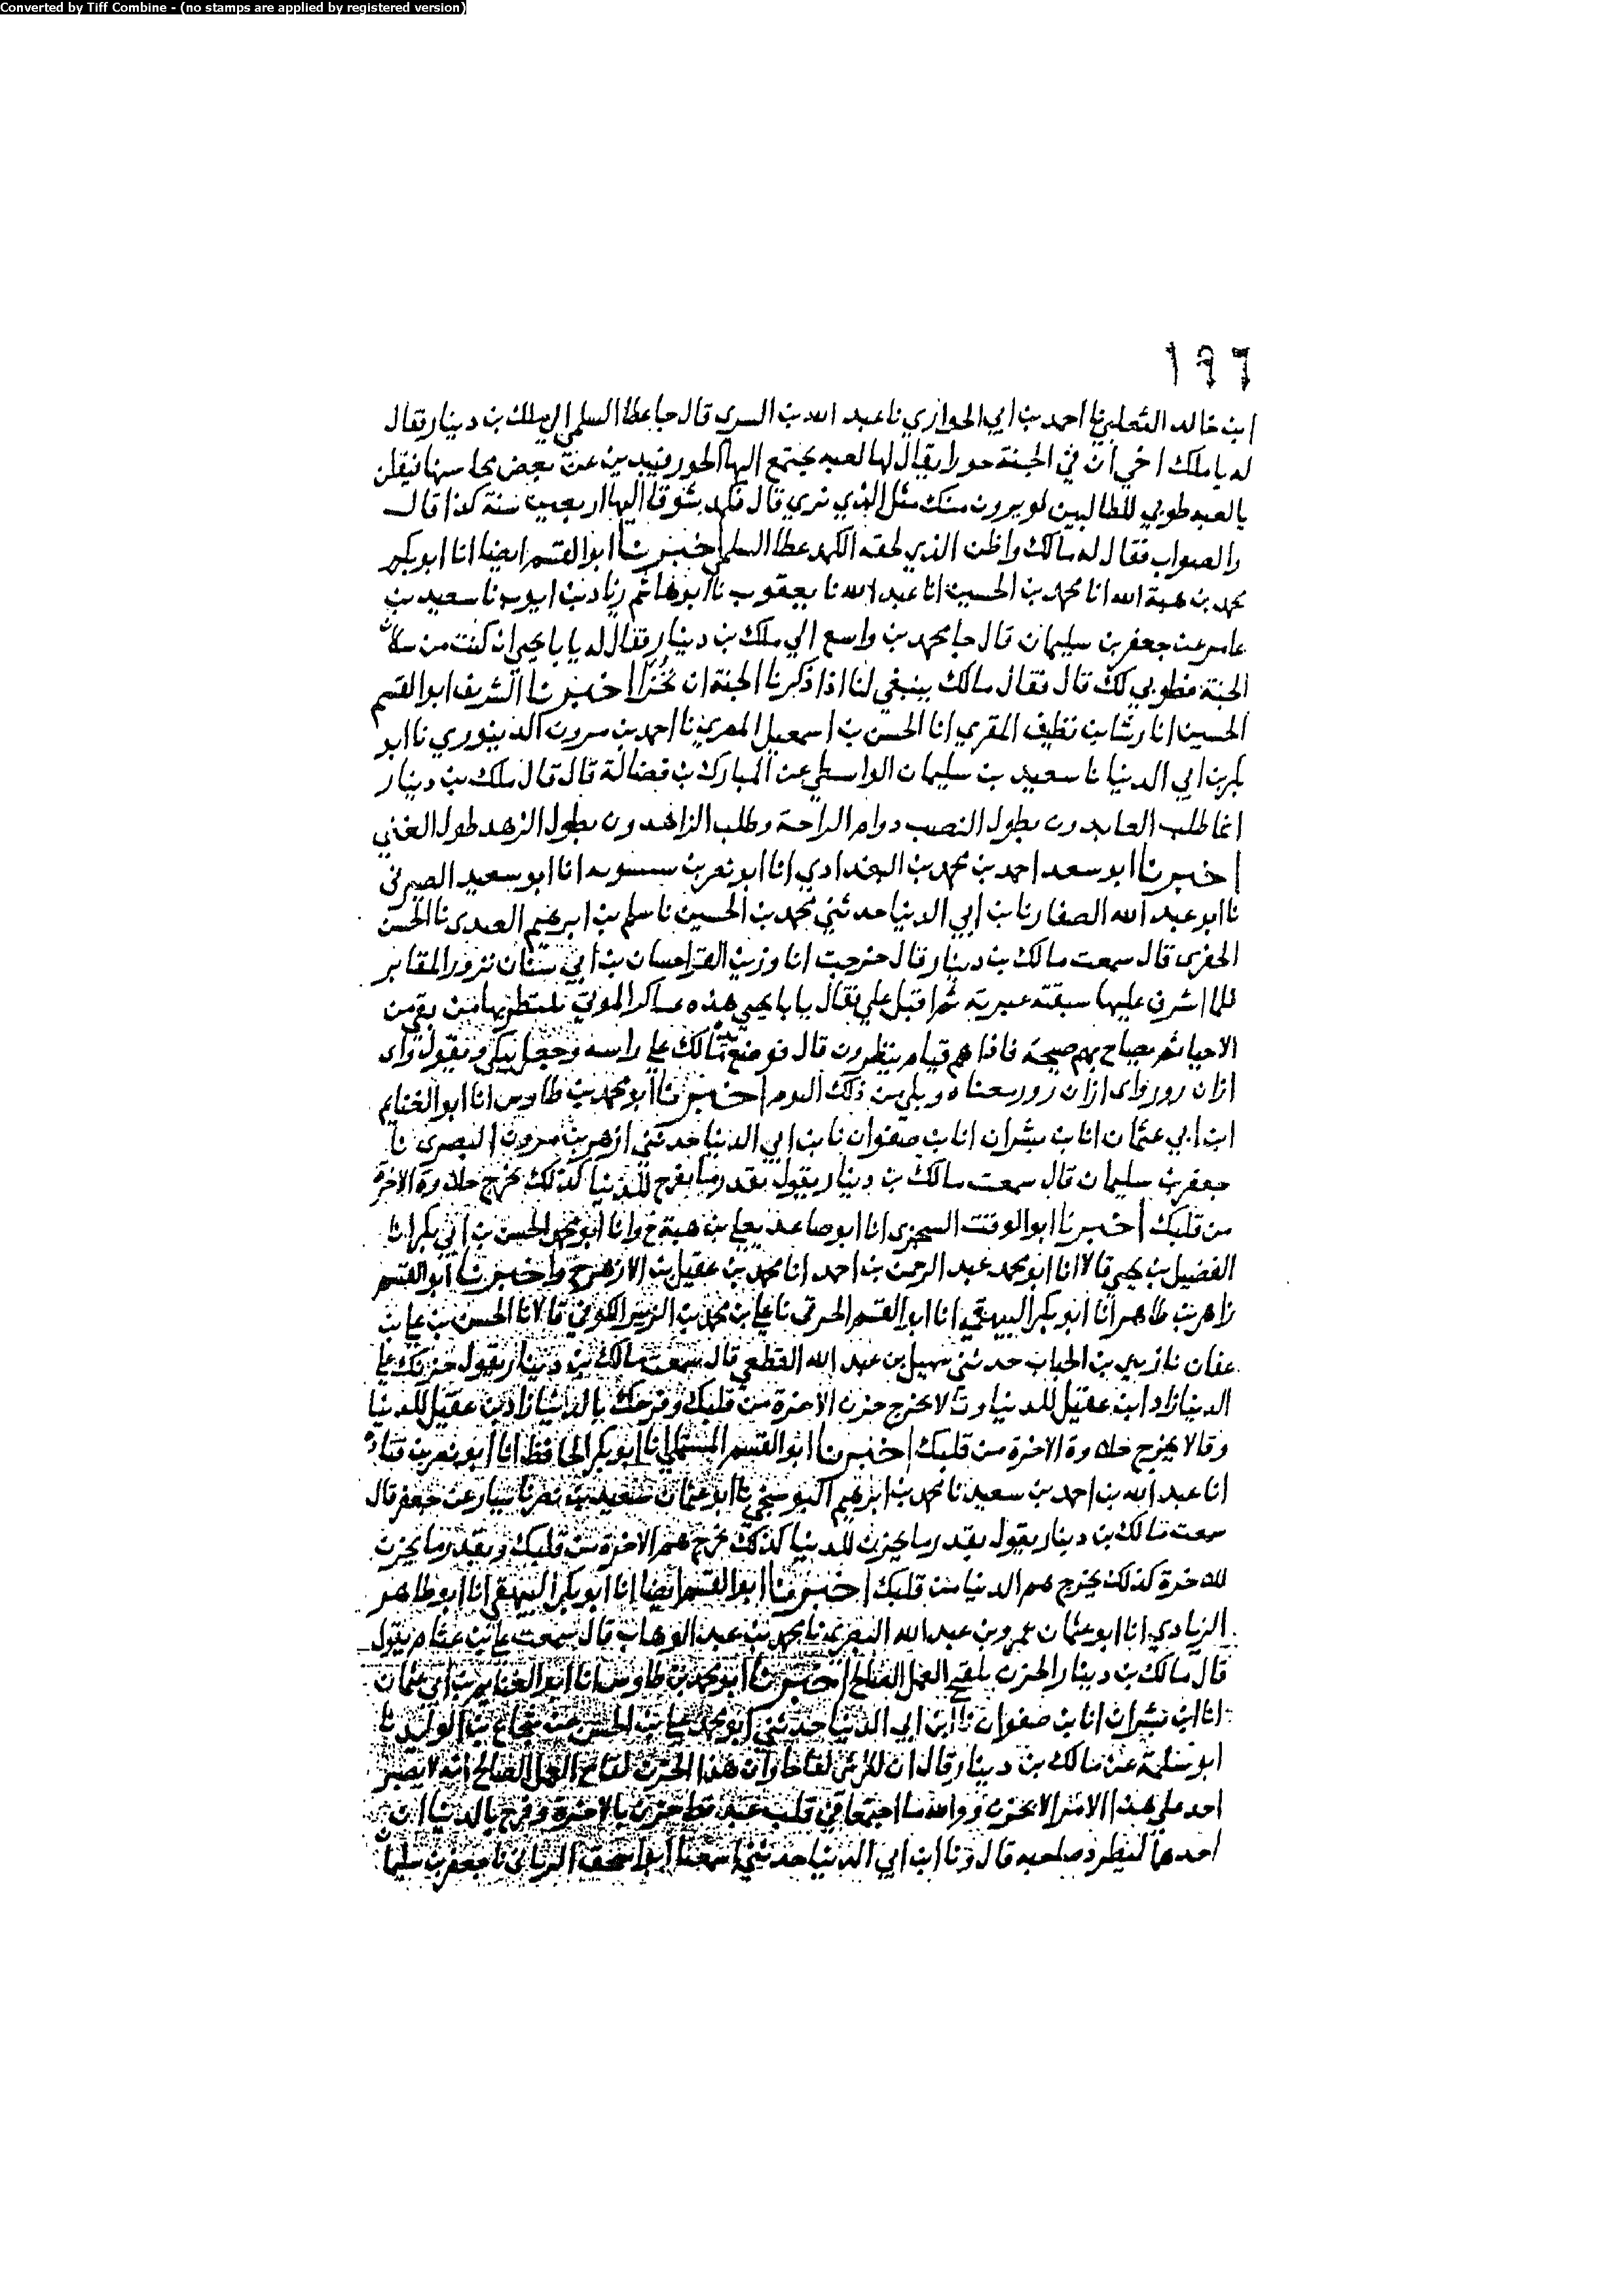 Converted by Tiff Combine - (no stamps are applied by registered version)
١٩٦
ابن خالد الثعلبي نا احمد بن ابي الحواري نا عبد الله بن السري قال جا عطا السلمي الى ملك بن دينار فقال
له يا ملك اخي ان في الجنة حورا يقال لها لعبه يجتمع اليها الحور فيبدين عن بعض محاسنها فيقلن
يالعبه طوبي للطالبين لو يرون منك مثل الذي نري قال فكهد شوقا اليها اربعين سنة كذا قال
والصواب فقال له مالك واظن الذي لحقه الكهد عطا السلمي اخبرنا ابو القسم ايضا انا ابو بكر
محمد بن هبة الله انا محمد بن الحسين انا عبد الله نا يعقوب نا ابو هاشم زياد بن ايوب نا سعيد بن
عامر عن جعفر بن سليمان قال جا محمد بن واسع الي ملك بن دينار فقال له يا با يحيى ان كنت من سكان
الجنة فطوبي لك قال فقال مالك ينبغي لنا اذا ذكرنا الجنة ان نخزا اخبرنا الشريف ابو القسم
الحسين انا رشا بن نظيف المقري انا الحسن بن اسمعيل المصري نا احمد بن مرون الدينوري نا ابو
بكر بن ابي الدنيا نا سعيد بن سليمان الواسطي عن المبارك بن فضالة قال قال ملك بن دينار
انما طلب العابدون بطول النصب دوام الراحة وطلب الزاهدون بطول الزهد طول الغني
اخبرنا ابو سعد احمد بن محمد بن البغدادي انا ابو نصر بن سسويه انا ابو سعيد الصيرفى
نا ابو عبد الله الصفار نا بن ابي الدنيا حدثني محمد بن الحسين نا سلم بن ابرهيم العبدى نا الحسن
الجفرى قال سمعت مالك بن دينار قال خرجت انا وزين القرا حسان بن ابي سنان نزور المقابر
فلما اشرف عليها سبقته عبرته ثم اقبل علي فقال يا با يحيى هذه عساكر الموتى ينتظر بها من بقي من
الاحيا ثم يصاح بهم صيحة فاذا هم قيام ينظرون قال فوضع مالك يده علي راسه وجعل يبكي ويقول واى
ازان روز واى ازان روز معناه ويلي من ذلك اليوم اخبرنا ابو محمد بن طاوس انا ابو الغنايم
ابن ابي عثمان انا بن بشران انا بن صفوان نا بن ابي الدنيا حدثني ازهر بن مرون البصرى نا
جعفر بن سليمان قال سمعت مالك بن دينار يقول بقدر ما يفرح للدنيا كذلك يخرج حلاوة الاخرة
من قلبك اخبرنا ابو الوقت السجزى انا ابو صاعد يعلي بن هبة ح وانا ابو محمد الحسن بن ابي بكر انا
الفضيل بن يحيى قالا انا ابو محمد عبد الرحمن بن احمد انا محمد بن عقيل بن الازهر ح واخبرنا ابو القسم
زاهر بن طاهر انا ابو بكر البيهقي انا ابو القسم الحرفى نا علي بن محمد بن الزبير الكوفي قالا نا الحسن بن علي بن
عفان نا زيد بن الحباب حدثني سهيل بن عبد الله القطعي قال سمعت مالك بن دينار يقول حزنك علي
الدنيا زاد ابن عقيل للدنيا وقالا يخرج حزن الاخرة من قلبك وفرحك بالدنيا زاد بن عقيل للدنيا
وقالا يخرج حلاوة الاخرة من قلبك اخبرنا ابو القسم المستملي انا ابو بكر الحافظ انا ابو نصر بن قتادة
انا عبد الله بن احمد بن سعيد نا محمد بن ابرهيم البوسنجي نا ابو عثمان سعيد بن نصر نا سيار عن جعفر قال
سمعت مالك بن دينار يقول بقدر ما يحزن للدنيا كذلك يخرج هم الاخرة من قلبك وبقدر ما يحزن
للاخرة كذلك يخرج هم الدنيا من قلبك اخبرنا ابو القسم ايضا انا ابو بكر البيهقي انا ابو طاهر
الزيادي انا ابو عثمان عمرو بن عبد الله البصري نا محمد بن عبد الوهاب قال سمعت علي بن عثام يقول
قال مالك بن دينار الحزن يلقح العمل الصالح اخبرنا ابو محمد بن طاوس انا ابو الغنايم بن ابي عثمان
انا ابن بشران انا بن صفوان نا ابن ابي الدنيا حدثني ابو محمد علي بن الحسن عن شجاع بن الوليد نا
ابو سلمة عن مالك بن دينار قال ان لكل شي لقاحا وان هذا الحزن لقاح العمل الصالح انه لا يصبر
احد على هذا الامر الا بحزن ووالله ما اجتمعا في قلب عبد قط حزن بالاخرة وفرح بالدنيا ان
احدهما ليطرد صاحبه قال ونا ابن ابي الدنيا حدثني اسمعيل ابو اسحق الزياتى نا جعفر بن سليمان